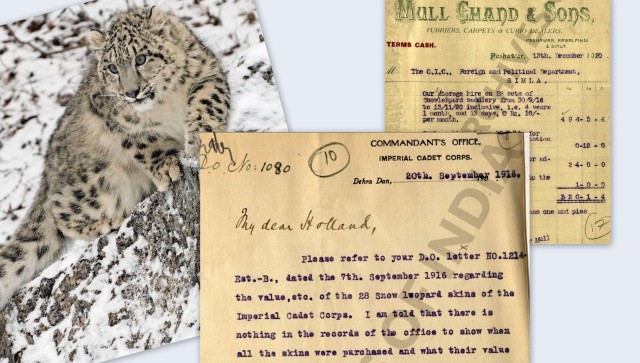 MULL CHAND & SONS,
FURRIERS, CARPETS & CURIO DEALERS.
PESHAWAR, RAWALPINDI
& SIMLA.
TERMS CASH.
Peshawar, 13th. December 1920
The O.I.C., Foreign and Political Department,
SIMLA.
Our storage hire on 28 sets of
Snowleopard saddlery from 30/9/16
to 13/11/20 inclusive, i.e. 4 years
1 month, and 13 days, @ Rs. 10/-
per month.
494-5-4
for
0-12-0
ad-
24-0-0
1-0-0
520-1-4
one and pies
Mull
17
D.O. No: 1080
10
COMMANDANT'S OFFICE,
IMPERIAL CADET CORPS.
Dehra Dun, 20th. September 1916.
My dear Holland,
Please refer to your D.O. letter NO.1214-
Est.-B., dated the 7th. September 1916 regarding
the value,etc. of the 28 Snow lwopard skins of the
Imperial Cadet Corps. I am told that there is
nothing in the records of the office to show when
all the skins were purchased and what their value
OF INDIA